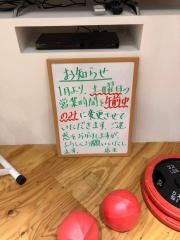 お知らせ
1月より、土曜日の
営業時間を午前中
のみに変更させて
いただきます。ご迷
惑をおかけしますが、
よろしくお願いいたし
ます。 店主